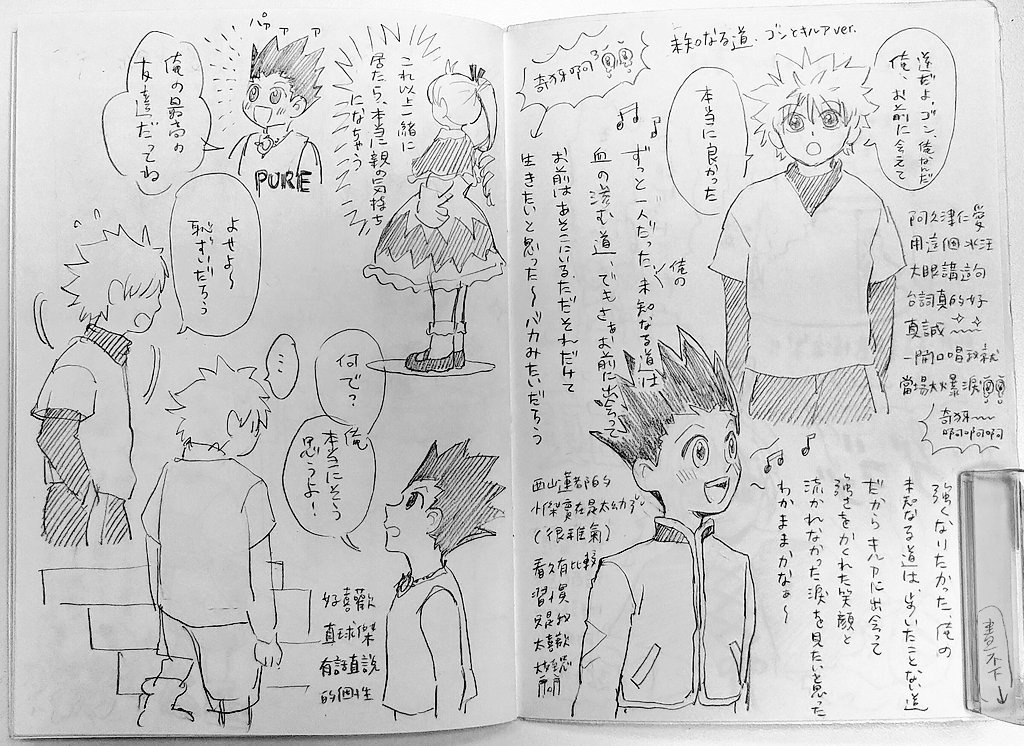 未知なる道、ゴンとキルアver.
逆だよ、ゴン、俺なんだ
俺、お前に会えて
本当に良かった
奇犽啊
阿久津仁愛
用這個水汪
大眼講這句
台詞真的好
真誠~~
一開口唱歌就
當場大爆淚
奇犽~~
啊啊啊啊
ずっと一人だった、未知なる道は
俺の
血の滲む道、でもさぁお前に出会って
お前はあそこにいる、ただそれだけて
生きたいと思った〜バカみたいだろう
強くなりたかった、俺の
未知なる道は、あいたことない道
だからキルアに出会って
強さをかくれた笑顔と
流かれなかった涙を見たいと思った
わかままかなぁ〜
西山蓮都的
小傑實在是太幼
(很稚氣)
看久有比較
習慣
只是我
太喜歡
畫不下↓
これ以上一緒に
居たら、本当に親の気持ち
になちゃう
パァァァ
俺の最高の
友達だってね
PURE
よせよ〜
恥ずいだろう
…
何で?
俺
本当にそう
思うよ!
好喜歡
真球傑
有話直說
的個性